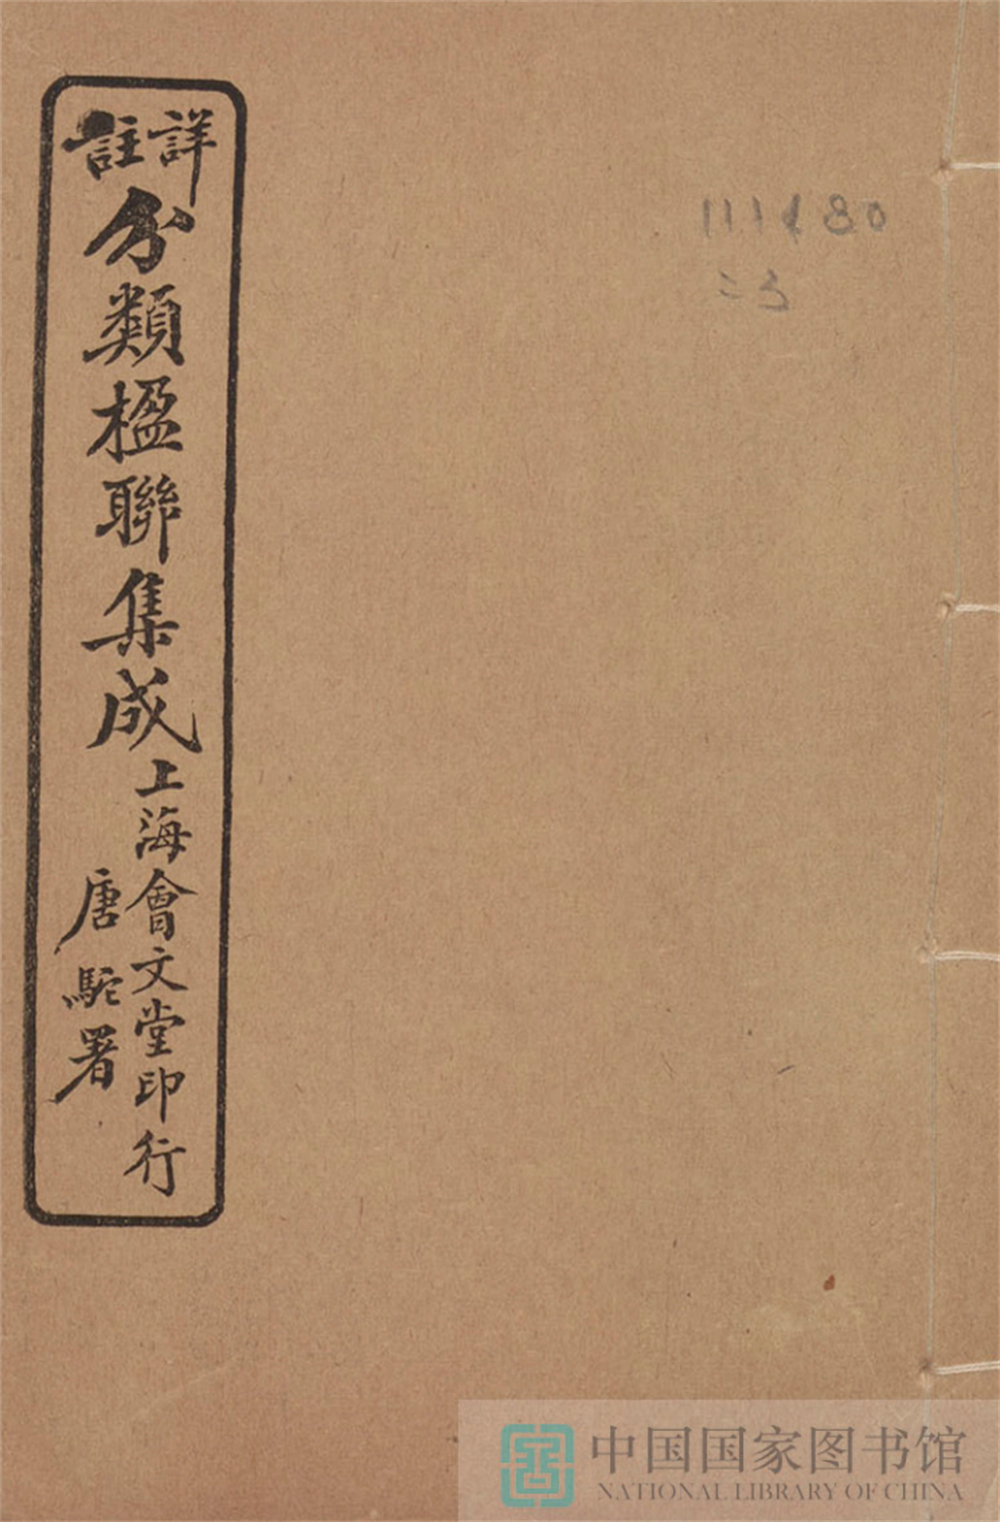 詳註
分類楹聯集成
上海會文堂印行
唐駝署
111480
中国国家图书馆
NATIONAL LIBRARY OF CHINA